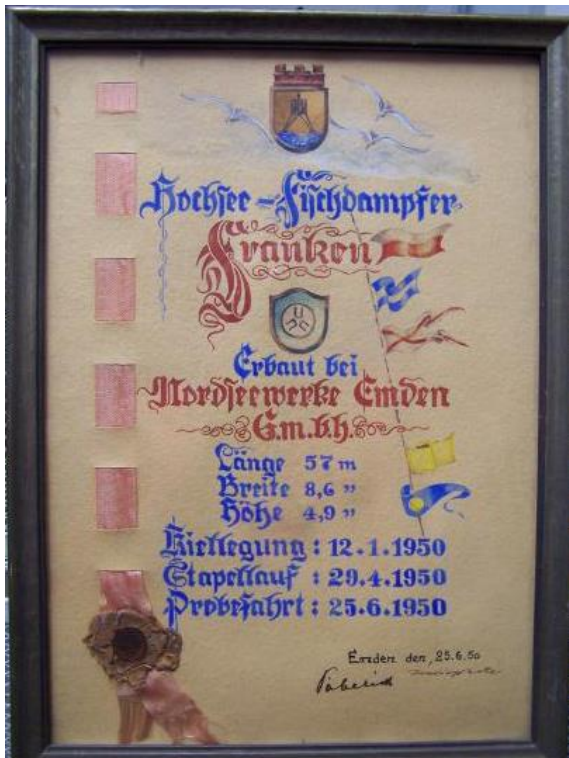 Hochsee-Fischdampfer
Franken
Erbaut bei
Nordseewerke Emden
G.m.b.h.
Länge 57 m
Breite 8,6 "
Höhe 4,9 "
Kiellegung : 12.1.1950
Stapellauf : 29.4.1950
Probefahrt : 25.6.1950
Emden den, 25.6.50